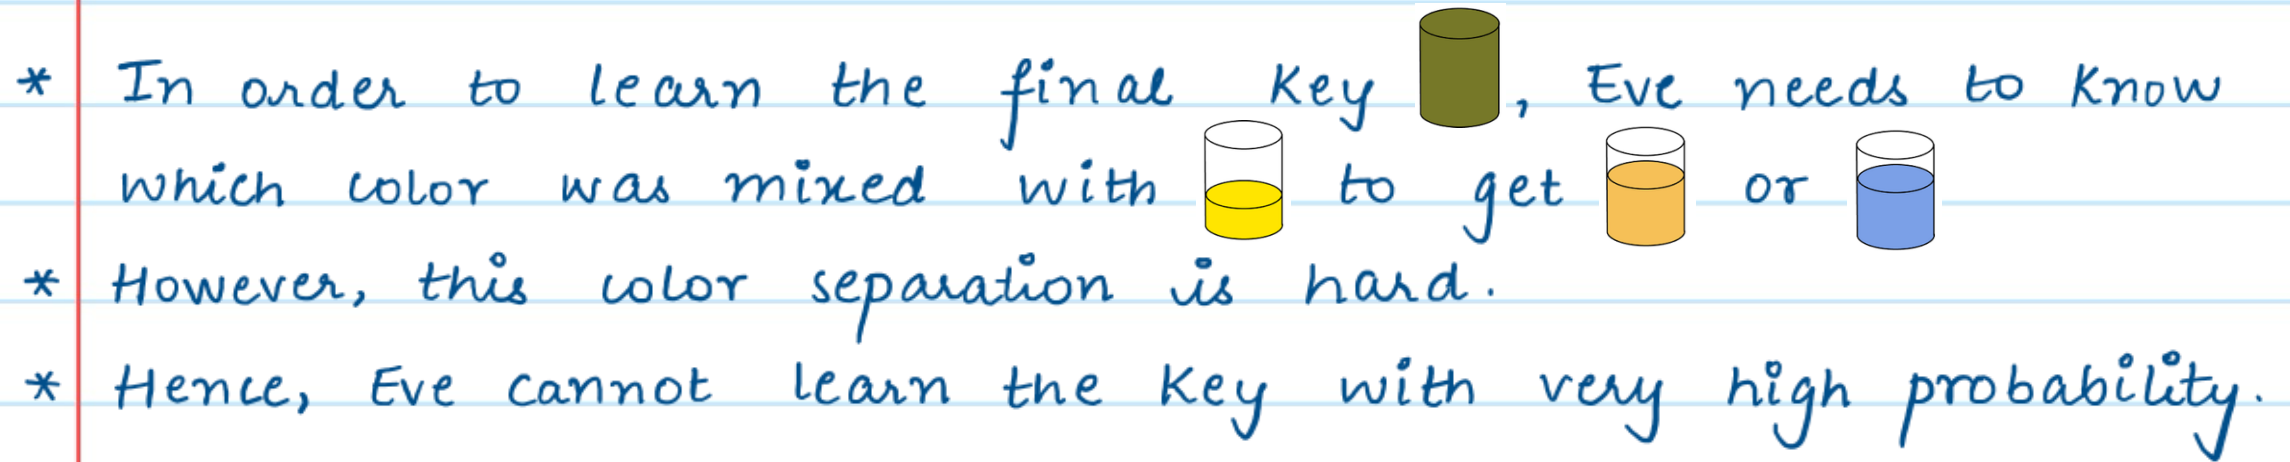 * In order to learn the final key , Eve needs to know
which color was mixed with to get or
* However, this color separation is hard.
* Hence, Eve cannot learn the key with very high probability.